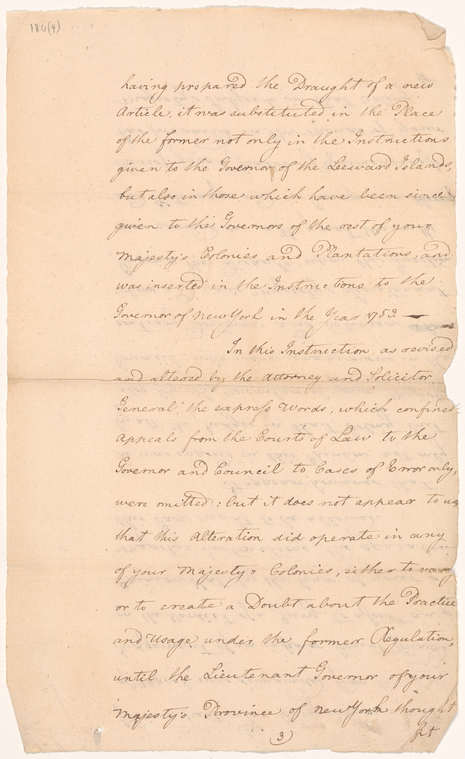 180(4)
having prepared the Draught of a new
Article, it was substituted in the Place
of the former not only in the Instructions
given to the Governor of the Leeward Islands,
but also in those which have been since
given to the Governors of the rest of your
Majesty's Colonies and Plantations, and
was inserted in the Instructions to the
Governor of New York in the Year 1753 —
In this Instruction, as revised
and altered by the Attorney and Solicitor
General, the express Words, which confined
Appeals from the Courts of Law to the
Governor and Council to Cases of Error only,
were omitted: but it does not appear to us
that this Alteration did operate in any
of your Majesty's Colonies, either to vary
or to create a Doubt about the Practice
and Usage under the former Regulation,
until the Lieutenant Governor of your
Majesty's Province of New York thought
fit
(3)